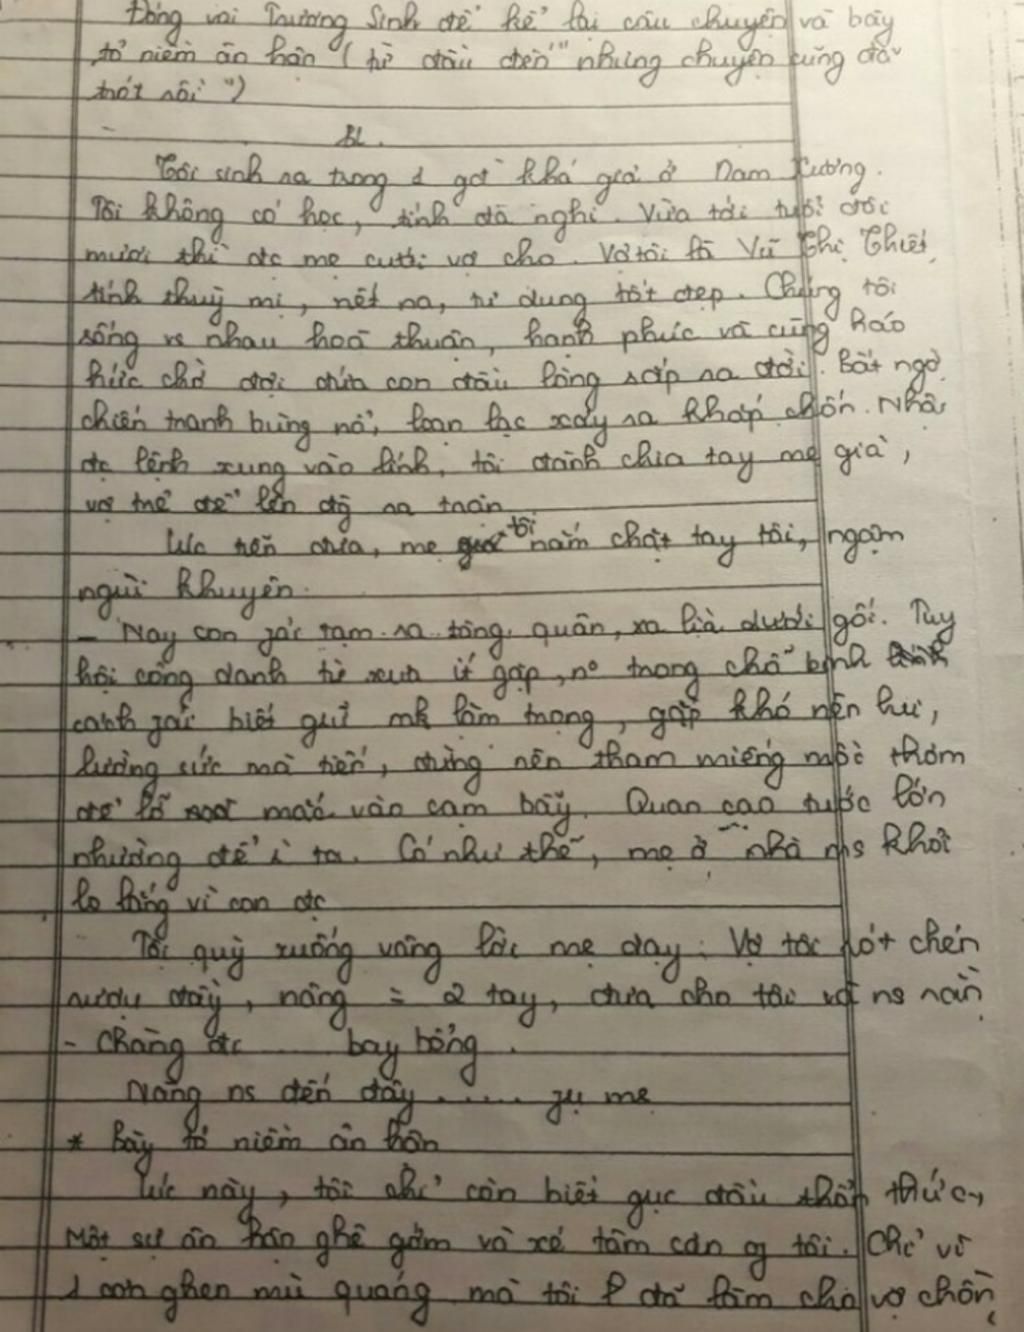 Đóng vai Trương Sinh để kể lại câu chuyện và bày
tỏ niềm ân hận (từ đầu đến "nhưng chuyện cũng đã
trót rồi")
BL.
Tôi sinh ra trong 1 gđ khá giả ở Nam Xương.
Tôi không có học, tính đa nghi. Vừa tới tuổi đôi
mươi thì đc mẹ cưới vợ cho. Vợ tôi là Vũ Thị Thiết,
tính thuỳ mị, nết na, tư dung tốt đẹp. Chúng tôi
sống vs nhau hoà thuận, hạnh phúc và cùng háo
hức chờ đợi đứa con đầu lòng sắp ra đời. Bất ngờ
chiến tranh bùng nổ, loạn lạc xảy ra khắp chốn. Nhận
đc lệnh xung vào lính, tôi đành chia tay mẹ già,
vợ trẻ để lên đg ra trận
Lúc tiễn đưa, mẹ tôi nắm chặt tay tôi, ngậm
ngùi khuyên.
- Nay con phải tạm ra tòng quân, xa lìa dưới gối. Tuy
hội công danh từ xưa ít gặp, no trong chỗ binh
cách phải biết giữ mk làm trọng, gặp khó nên lui,
lường sức mà tiến, đừng nên tham miếng mồi thơm
để lỡ mắc vào cạm bẫy. Quan cao tước lớn
nhường để ta. Có như thế, mẹ ở nhà ms khỏi
lo lắng vì con đc
Tôi quỳ xuống vâng lời mẹ dạy. Vợ tôi rót chén
rượu đầy, nâng = 2 tay, đưa cho tôi và ns rằng
- Chàng đc bay bổng.
Nàng ns đến đây .....  mẹ
* Bày tỏ niềm ân hận
Lúc này, tôi chỉ còn biết gục đầu thổn thức,
Một sự ân hận ghê gớm vò xé tâm can of tôi. Chỉ vì
1 cơn ghen mù quáng mà tôi đã làm cho vợ chồng